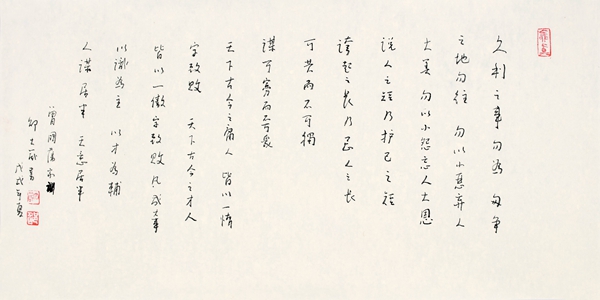 久利之事勿為 众争
之地勿往 勿以小惡弃人
大美 勿以小怨忘人大恩
说人之短乃护己之短
誇己之长乃忌人之长
可共而不可獨
谋可寡而不可众
天下古今之庸人 皆以一惰
字致败 天下古今之才人
皆以一傲字致败 凡成大事
以識為主 以才為輔
人谋居半 天意居半
曾國藩家訓
戊戌年夏